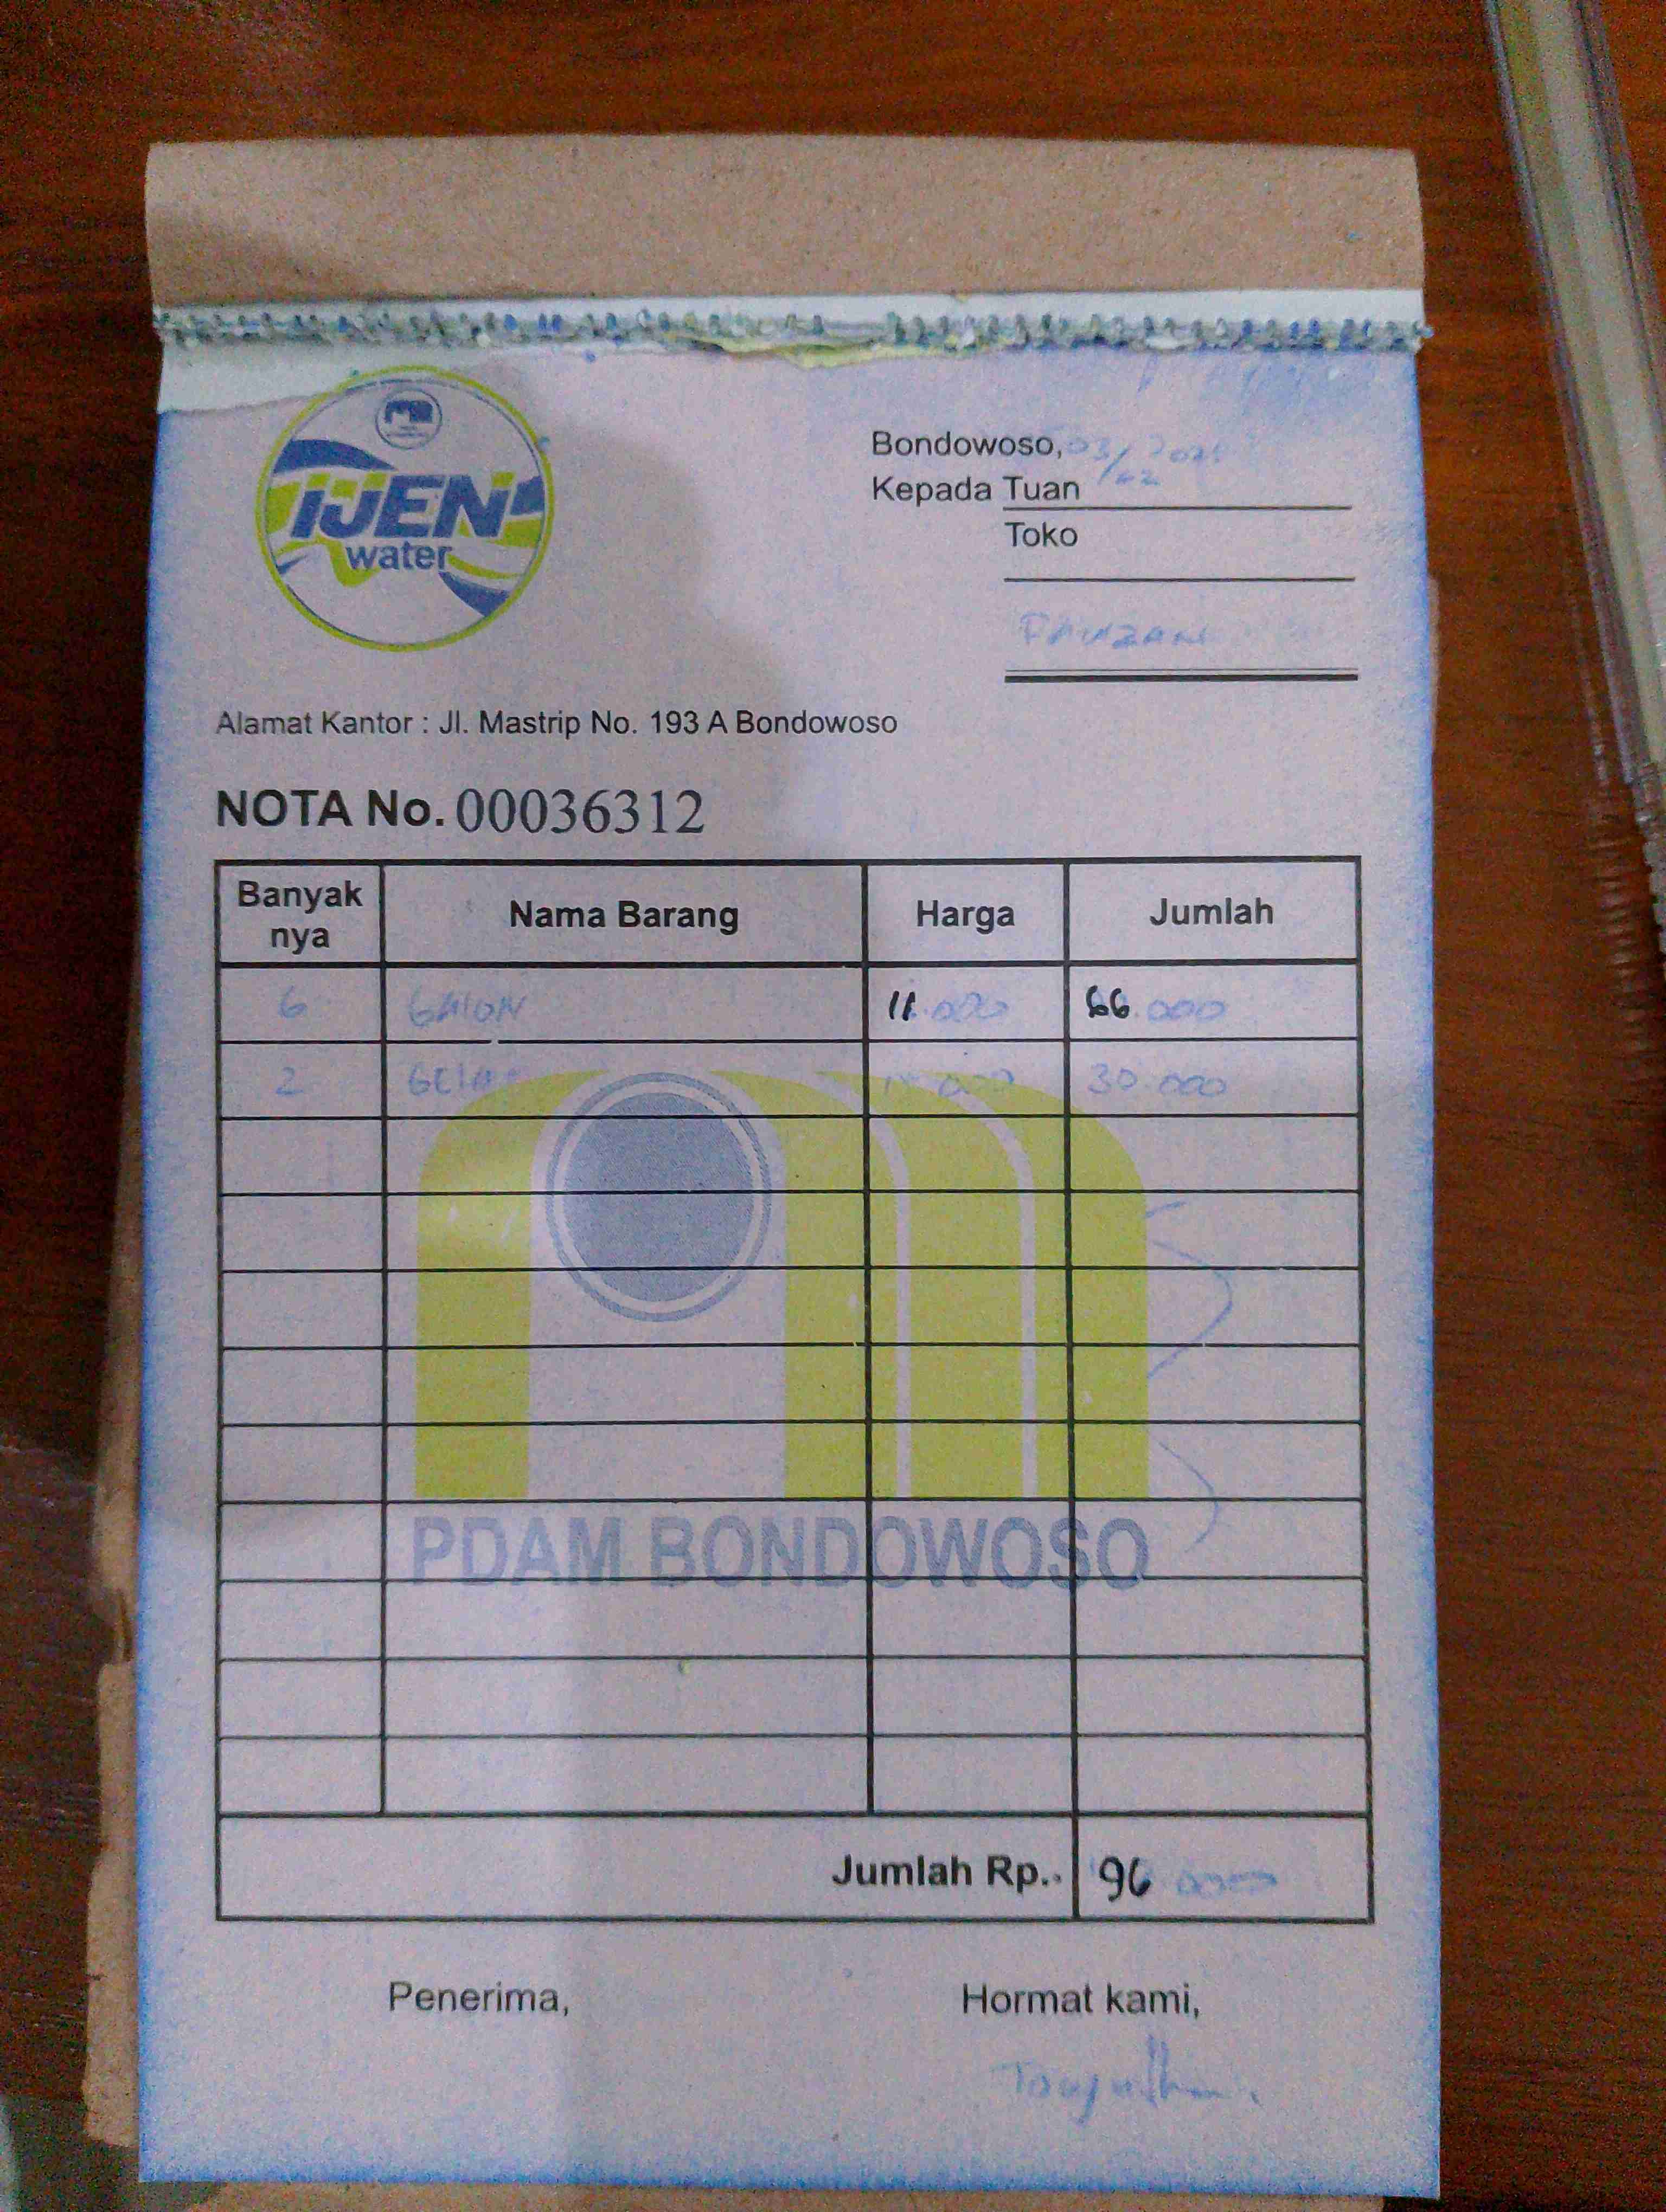 IJEN
water
Bondowoso, 03/02 2021
Kepada Tuan
Toko
FAUZAN
Alamat Kantor : Jl. Mastrip No. 193 A Bondowoso
NOTA No. 00036312
Banyak nya Nama Barang Harga Jumlah
6 GALON 11.000 66.000
2 30.000
PDAM BONDOWOSO
Jumlah Rp.. 96.000
Penerima, Hormat kami,